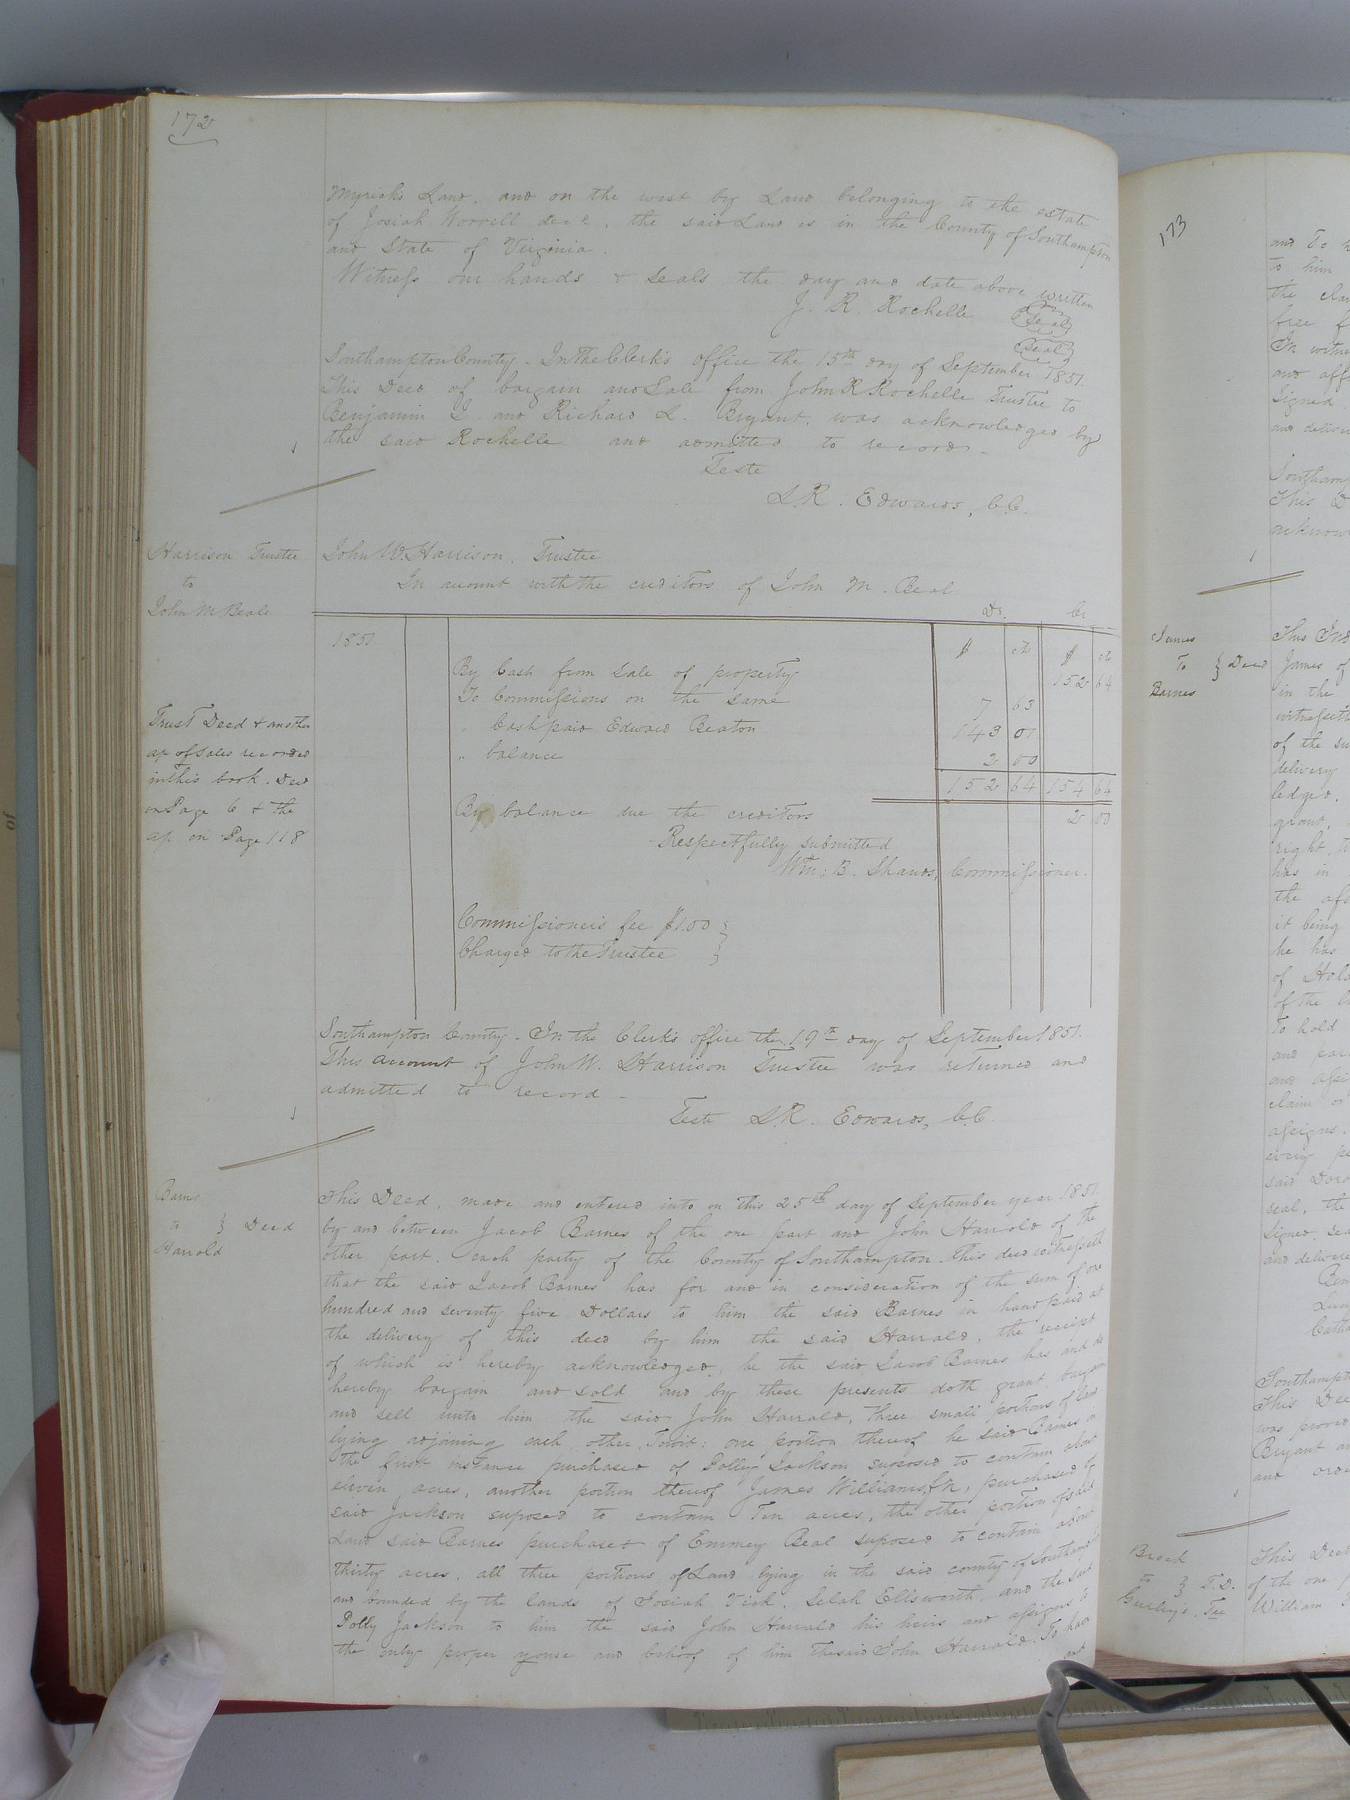 172
Myrick's Land, and on the west by Land belonging to the estate
of Josiah Worrell decd, the said Land is in the County of Southampton
and State of Virginia.
Witness our hands & Seals the day and date above written
J. R. Rochelle Seal
Seal
Southampton County. In The Clerk's office the 15th day of September 1851.
This Deed of bargain and Sale from John R Rochelle Trustee to
Benjamin and Richard L. Bryant, was acknowledged by
the said Rochelle and admitted to record.
Teste
L. R. Edwards, C.C.
Harrison Trustee
to
John M Beale
John W. Harrison, Trustee
In account with the creditors of John M. Beal
Dr. Cr
1851 $ cts $ cts
By Cash from Sale of property 152 64
To Commissions on the same 7 63
" Cash paid Edward Beaton 143 01
" balance 2 00
152 64 154 64
By balance due the creditors 2 00
Respectfully submitted
Wm. B. Shands, Commissioner.
Trust Deed & another
ap of sales recorded
in this book. Deed
on Page 6 & the
ap on Page 118
Commissioner's fee $1.00 }
Charged to the Trustee }
Southampton County. In the Clerk's office the 19th day of September 1851.
This account of John W. Harrison Trustee was returned and
admitted to record.
Teste L. R. Edwards, C.C.
Barnes
to } Deed
Harrold
This Deed, made and entered into on this 25th day of September year 1851
by and between Jacob Barnes of the one part and John Harrald of the
other part, each party of the County of Southampton. This deed witnesseth
that the said Jacob Barnes has for and in consideration of the sum of one
hundred and seventy five Dollars to him the said Barnes in hand paid at
the delivery of this deed by him the said Harrald, the receipt
of which is hereby acknowledged, he the said Jacob Barnes has and do
hereby bargain and sold and by these presents doth grant bargain
and sell unto him the said John Harrald, three small portions of land
lying adjoining each other, Towit: one portion thereof he said Barnes in
the first instance purchased of Polly Jackson suposed to contain about
eleven acres, another portion thereof James Williams, purchased of
said Jackson suposed to contain Ten acres, the other portion of said
Land said Barnes purchased of Emmey Beal suposed to contain about
thirty acres, all three portions of Land lying in the said county of Southampton
and bounded by the lands of Josiah Vick, Selah Ellsworth, and the said
Polly Jackson to him the said John Harrald his heirs and assigns to
the only proper youse and behoof of him the said John Harrald. To have
and
173
and To h
to him
the cla
free f
In witne
and aff
Signed
and deliver
Southamp
This D
acknow
James
To } Deed
Barnes
This Ind
James of
in the
witnesseth
of the su
delivery
ledged,
grant,
right, t
has in
the afo
it being
he has
of Hola
of the
To hold
and par
and assi
claim or
assigns,
every pe
said Doro
seal, the
Signed, sea
and delivere
Southampto
This Dee
was proved
Bryant an
and orde
Brock
to } T.D.
Gurley, Tee
This Deed
of the one p
William